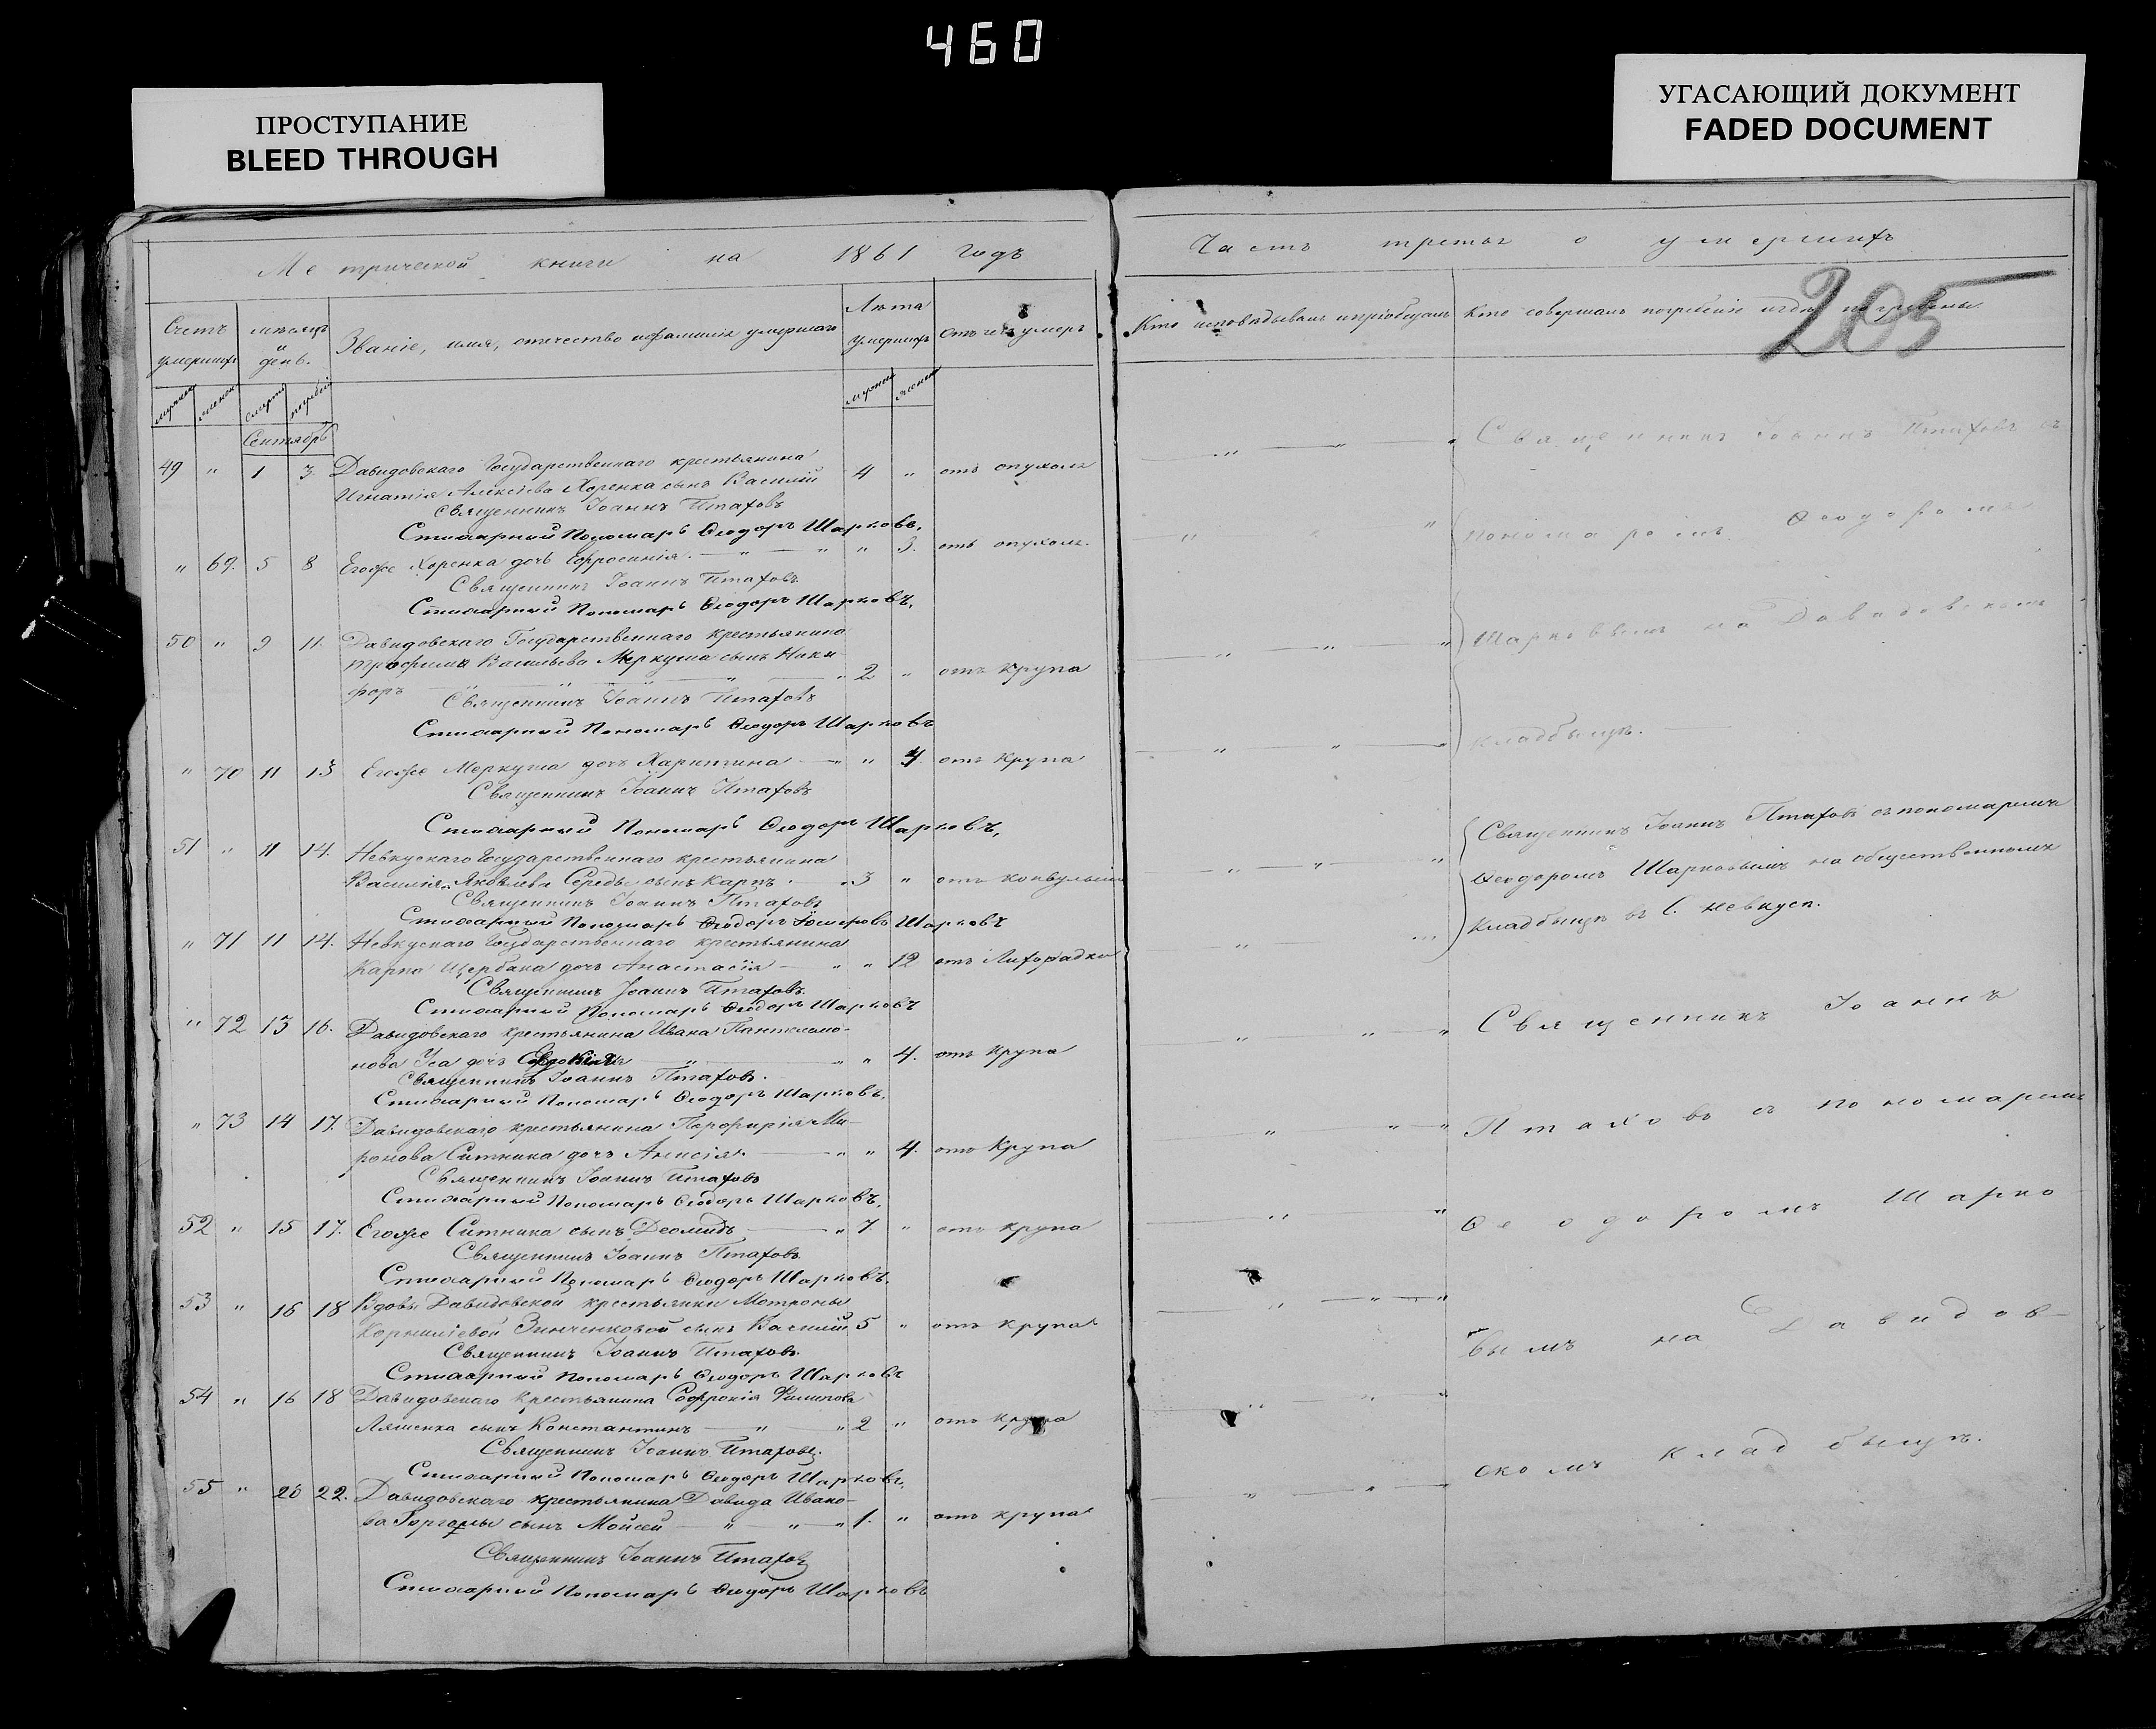 460
ПРОСТУПАНИЕ
BLEED THROUGH
УГАСАЮЩИЙ ДОКУМЕНТ
FADED DOCUMENT
Метрической книги на 1861 годъ
Счетъ умершихъ
мѣсяцъ и день.
Званіе, имя, отчество и фамилія умершаго
Лѣта умершихъ
отъ чего умеръ
Сентябрь
49 " 1 3 Давидовскаго Государственнаго крестьянина
Игнатія Алексіева Хоренка сынъ Василій 4 " отъ опухоли
Священникъ Іоаннъ Птаховъ
Стихарный Пономарь Ѳеодоръ Шарковъ.
" 69. 5 8 Егоже Хоренка дочь Ефросинія. " " " 3. отъ опухоли.
Священникъ Іоаннъ Птаховъ
Стихарный Пономарь Ѳеодоръ Шарковъ.
50 " 9 11. Давидовскаго Государственнаго крестьянина
Трофима Васильева Меркуша сынъ Ники-
форъ " 2 " отъ крупа
Священникъ Іоаннъ Птаховъ
Стихарный Пономарь Ѳеодоръ Шарковъ
" 70 11 13 Егоже Меркуша дочь Харитина " " 4. отъ крупа
Священникъ Іоаннъ Птаховъ
Стихарный Пономарь Ѳеодоръ Шарковъ.
51 " 11 14. Невкускаго Государственнаго крестьянина
Василія Яковлева Середы сынъ Карпъ. " 3 " отъ конвульсіи
Священникъ Іоаннъ Птаховъ
Стихарный Пономарь Ѳеодоръ Шарковъ
" 71 11 14. Невкускаго Государственнаго крестьянина
Карпа Щербака дочь Анастасія " " 12 отъ Лихорадки
Священникъ Іоаннъ Птаховъ.
Стихарный Пономарь Ѳеодоръ Шарковъ
" 72 13 16. Давидовскаго крестьянина Ивана Пантелемо-
нова Уса дочь Евдокія " " " 4. отъ крупа
Священникъ Іоаннъ Птаховъ.
Стихарный Пономарь Ѳеодоръ Шарковъ.
" 73 14 17. Давидовскаго крестьянина Порфирія Ми-
ронова Ситника дочь Анисія. " " 4. отъ Крупа
Священникъ Іоаннъ Птаховъ
Стихарный Пономарь Ѳеодоръ Шарковъ.
52 " 15 17. Егоже Ситника сынъ Деомидъ " 7. " отъ крупа
Священникъ Іоаннъ Птаховъ
Стихарный Пономарь Ѳеодоръ Шарковъ.
53 " 16 18 Вдовы Давидовской крестьянки Мотроны
Корниліевой Зинченковой сынъ Василій 5 " отъ крупа
Священникъ Іоаннъ Птаховъ.
Стихарный Пономарь Ѳеодоръ Шарковъ
54 " 16 18 Давидовскаго крестьянина Софронія Филипова
Ляшенка сынъ Константинъ " " 2 " отъ крупа
Священникъ Іоаннъ Птаховъ.
Стихарный Пономарь Ѳеодоръ Шарковъ.
55 " 20 22. Давидовскаго крестьянина Давида Ивано-
ва сынъ Мойсей " " " 1. " отъ крупа
Священникъ Іоаннъ Птаховъ
Стихарный Пономарь Ѳеодоръ Шарковъ
Часть третья о умершихъ
205
Кто исповѣдывалъ и пріобщалъ
Кто совершалъ погребеніе и гдѣ погребены
Священникъ Іоаннъ Птаховъ съ
пономаремъ Ѳеодоромъ
Шарковымъ на Давидовскомъ
кладбищѣ.
Священникъ Іоаннъ Птаховъ съ пономаремъ
Ѳеодоромъ Шарковымъ на общественномъ
кладбищѣ въ С. Невкусп.
Священникъ Іоаннъ
Птаховъ съ пономаремъ
Ѳеодоромъ Шарко
вымъ на Давидов-
скомъ кладбищѣ.